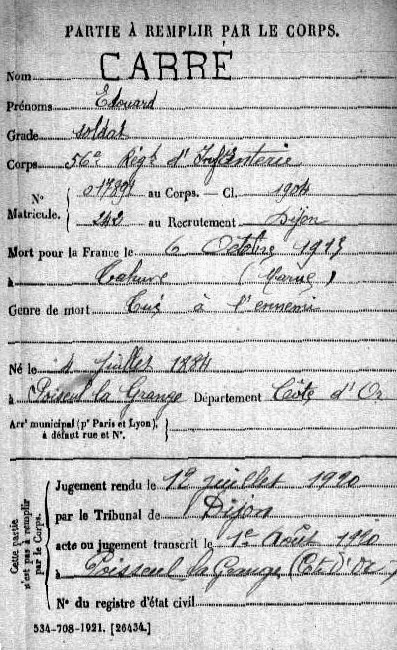 PARTIE À REMPLIR PAR LE CORPS.
Nom CARRÉ
Prénoms Edouard
Grade soldat
Corps 56e Régt d'Infanterie
N° Matricule. { 017891 au Corps. — Cl. 1904
242 au Recrutement Dijon
Mort pour la France le 6 Octobre 1915
à Tahure (Marne)
Genre de mort Tué à l'ennemi
Né le 4 Juillet 1884
à Poiseul la Grange Département Côte d'Or
Arrt municipal (pr Paris et Lyon), à défaut rue et N°. {
Cette partie n'est pas à remplir par le Corps.
Jugement rendu le 12 juillet 1920
par le Tribunal de Dijon
acte ou jugement transcrit le 1e Août 1920
à Poisseul la Grange (Cte D'Or)
N° du registre d'état civil
534-708-1921. [26434.]